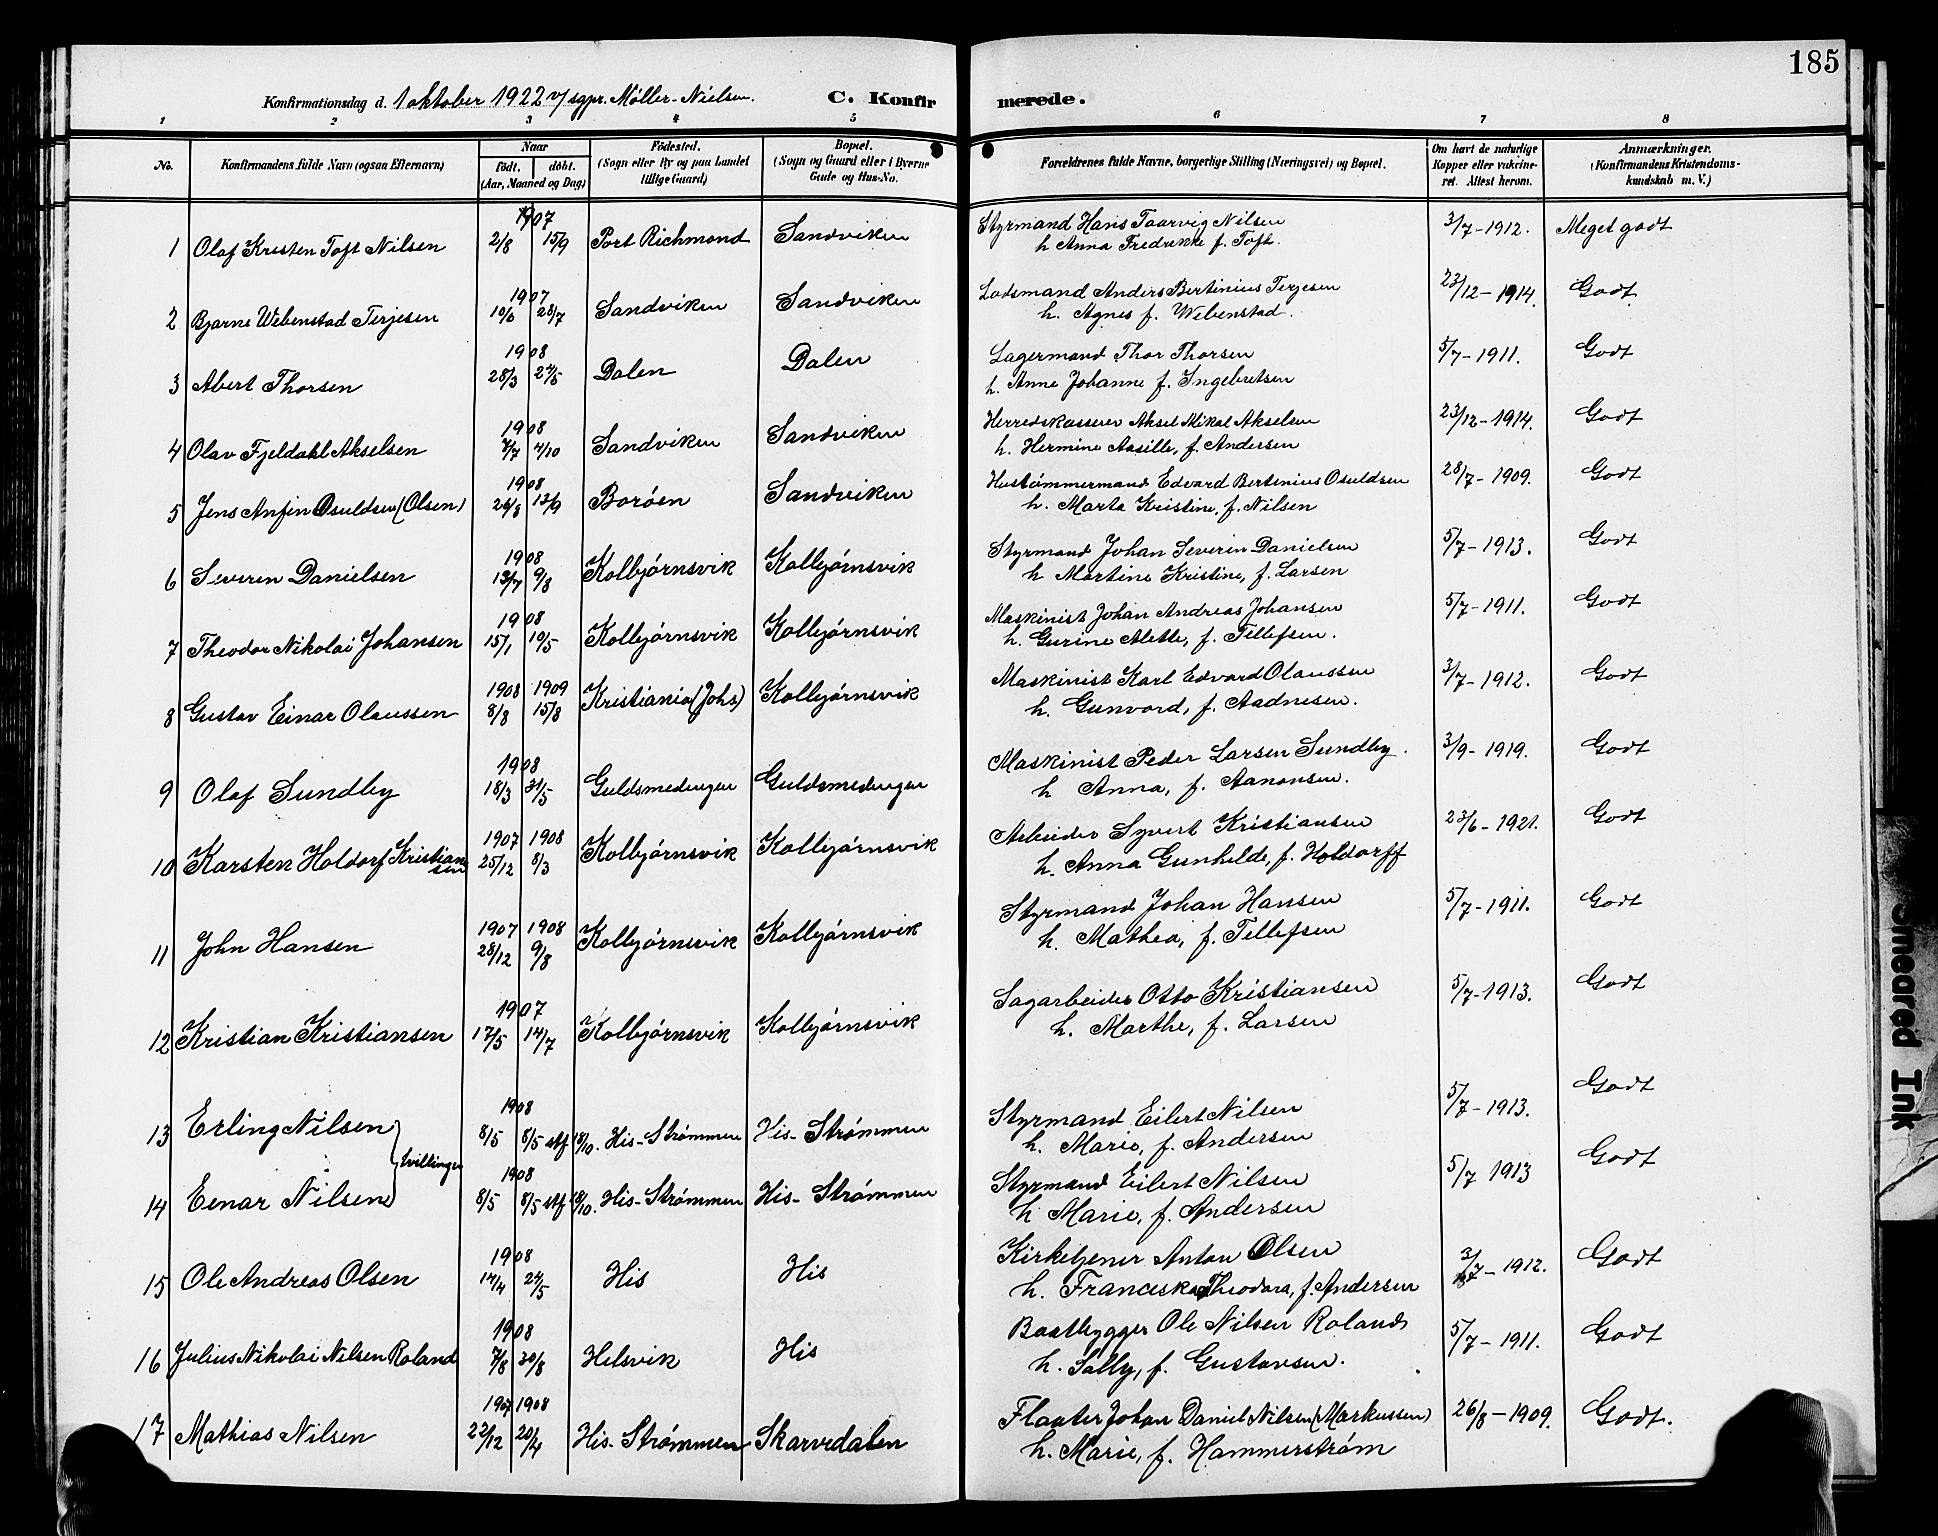 185
Konfirmationsdag d. 1 oktober 1922 v/ sgpr. Möller-Nielsen. C. Konfirmerede.
1 2 3 4 5 6 7 8
No. Konfirmandens fulde Navn (ogsaa Efternavn) Naar født. døbt. (Aar, Maaned og Dag) Fødested. (Sogn eller By og paa Landet tillige Gaard) Bopæl. (Sogn og Gaard eller i Byerne Gade og Hus-No. Forældrenes fulde Navne, borgerlige Stilling (Næringsvei) og Bopæl. Om havt de naturlige Kopper eller vakcineret. Attest herom. Anmærkninger. (Konfirmandens Kristendomskundskab m. V.)
1907
1 Olaf Kristen Toft Nilsen 2/8 15/9 Port Richmond Sandviken Styrmand Hans Taarvig Nilsen 3/7-1912. Meget godt
h. Anna Fredrikke f. Toft.
1907
2 Bjarne Webenstad Terjesen 10/6 28/7 Sandviken Sandviken Lodsmand Anders Bertinius Terjesen 23/12-1914. Godt
h. Agnes f. Webenstad.
1908
3 Abert Thorsen 28/3 24/5 Dalen Dalen Lagermand Thor Thorsen 5/7-1911. Godt
h. Anne Johanne f. Ingebretsen
1908
4 Olav Fjeldahl Akselsen 7/7 4/10 Sandviken Sandviken Herredskasserer Aksel Mikal Akselsen 23/12-1914. Godt
h. Hermine Aasille, f. Andersen
1908
5 Jens Anfin Osuldsen (Olsen) 26/8 13/9 Borøen Sandviken Hustømmermand Edvard Bertenius Osuldsen 28/7-1909. Godt
h. Marta Kristine, f. Nilsen
1908
6 Severin Danielsen 13/7 9/8 Kolbjørnsvik Kolbjørnsvik Styrmand Johan Severin Danielsen 5/7-1913. Godt
h Martine Kristine, f. Larsen
1908
7 Theodor Nikolai Johansen 15/1 10/5 Kolbjørnsvik Kolbjørnsvik Maskinist Johan Andreas Johansen 5/7-1911. Godt
h. Gurine Alette, f. Tellefsen.
1908 1909
8 Gustav Einar Olaussen 8/8 15/8 Kristiania (Johs) Kolbjørnsvik Maskinist Karl Edvard Olaussen 3/7-1912. Godt
h. Gunvord, f. Aadnesen.
1908
9 Olaf Sundby 18/3 31/5 Guldsmedengen Guldsmedengen Maskinist Peder Larsen Sundby. 3/9-1919. Godt
h Anna, f. Aanonsen.
1907 1908
10 Karsten Holdorf Kristiansen 25/12 8/3 Kolbjørnsvik Kolbjørnsvik Arbeider Syvert Kristiansen 23/6-1921. Godt
h. Anna Gunhilde, f. Holdorff
1907 1908
11 John Hansen 28/12 9/8 Kolbjørnsvik Kolbjørnsvik Styrmand Johan Hansen 5/7-1911. Godt
h. Mathea, f. Tellefsen
1907
12 Kristian Kristiansen 17/5 14/7 Kolbjørnsvik Kolbjørnsvik Sagarbeider Otto Kristiansen 5/7-1913. Godt
h. Marthe, f. Larsen
1908
13 Erling Nilsen 8/5 8/5 stf 18/10. His-Strømmen His-Strømmen Styrmand Eilert Nilsen 5/7-1913. Godt
h. Marie, f. Andersen
tvillinger
1908
14 Einar Nilsen 8/5 8/5 stf 18/10. His-Strømmen His-Strømmen Styrmand Eilert Nilsen 5/7 1913 Godt
h Marie, f. Andersen
1908
15 Ole Andreas Olsen 14/4 24/5 His His Kirketjener Anton Olsen 3/7-1912. Godt
h. Franciska Theodora, f. Andersen
1908
16 Julius Nikolai Nilsen Roland 7/8 30/8 Helsvik His Baatbygger Ole Nilsen Roland 5/7-1911. Godt
h. Sally, f. Gustavsen.
1907 1908
17 Mathias Nilsen 22/12 20/4 His. Strømmen Skarvedalen Flaater Johan Daniel Nilsen (Markussen) 26/8-1909. Godt.
h. Marie, f. Hammerstrøm
Smeared Ink